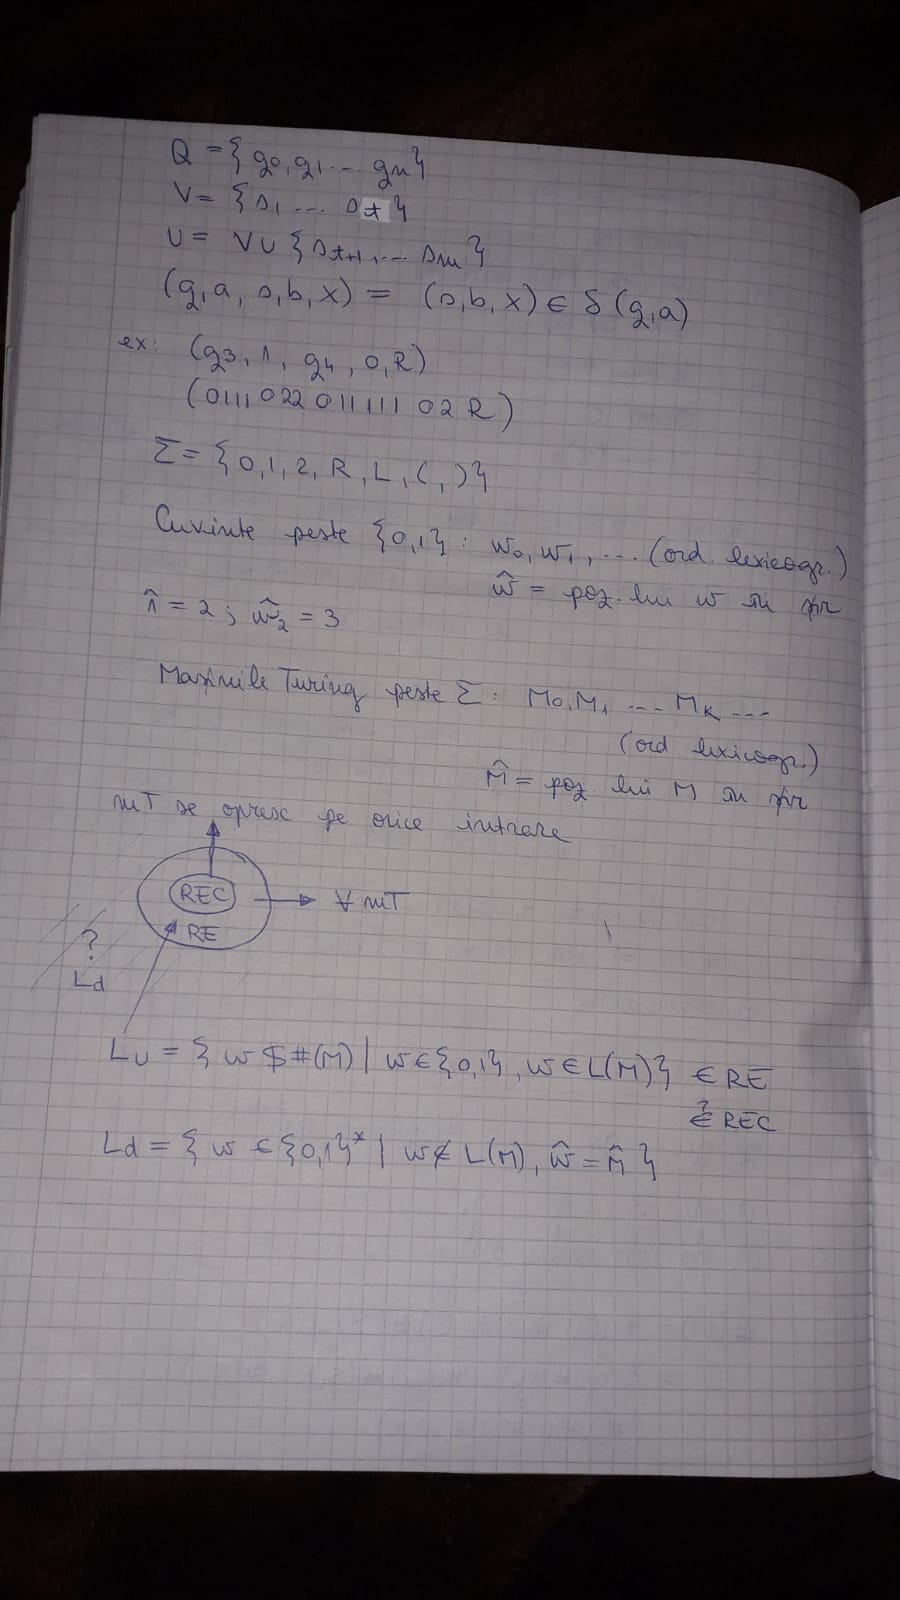 Q = {q0, q1 ... qn}
V = {s1, ... st}
U = V ∪ {st+1, ... sm}
(q, a, s, b, x) = (s, b, x) ∈ δ(q, a)
ex: (q3, 1, q4, 0, R)
(0111 022 011111 02 R)
Σ = {0, 1, 2, R, L, (, )}
Cuvinte peste {0,1} : w0, w1, ... (ord. lexicogr.)
ŵ = poz. lui w în șir
1̂ = 2 ; ŵ2 = 3
Mașinile Turing peste Σ : M0, M1 ... Mk ...
(ord lexicogr.)
M̂ = poz. lui M în șir
mT se opresc pe orice intrare
REC
∀ mT
RE
?
Ld
LU = { w $ #(M) | w ∈ {0,1}, w ∈ L(M)} ∈ RE
?
∈ REC
Ld = { w ∈ {0,1}* | w ∉ L(M), ŵ = M̂ }